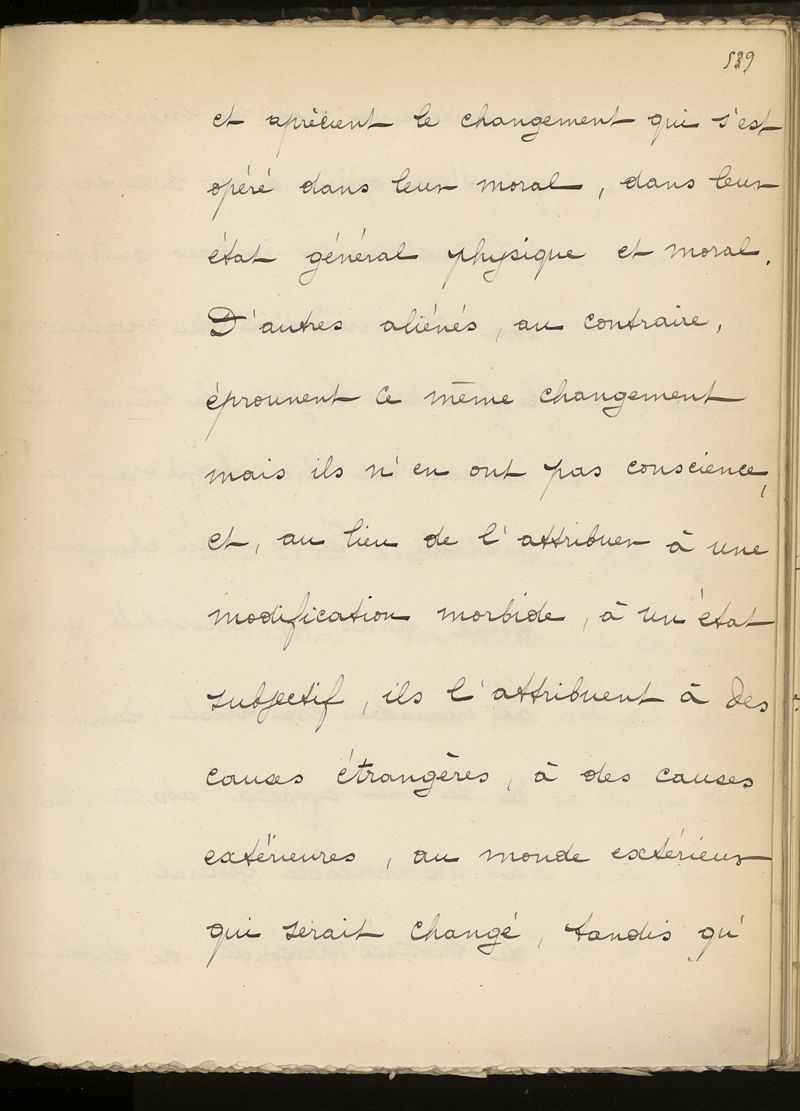 539
et aprécient le changement qui s'est
opéré dans leur moral, dans leur
état général physique et moral.
D'autres aliénés, au contraire,
éprouvent ce même changement
mais ils n'en ont pas conscience,
et, au lieu de l'attribuer à une
modification morbide, à un état
subjectif, ils l'attribuent à des
causes étrangères, à des causes
extérieures, au monde extérieur
qui serait changé, tandis qu'